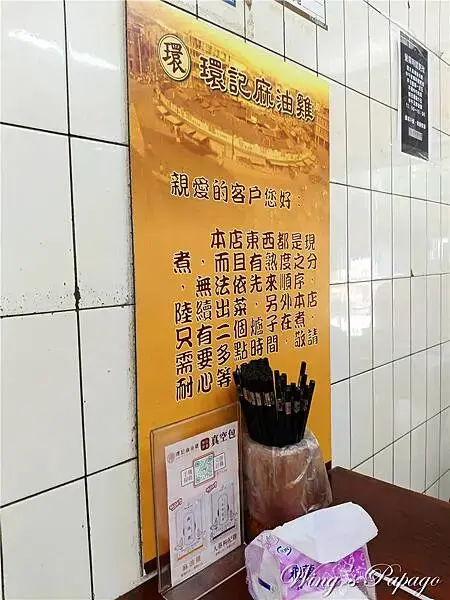 環 環記麻油雞
親愛的客户您好：
本店東西都是現
煮．而且有熟度之分
．無法依先來順序．
陸續出菜．另外本店
只有二個爐子在煮．
需要多點時間．敬請
耐心等
環記麻油雞 真空包
麻油雞
Wang's Papago